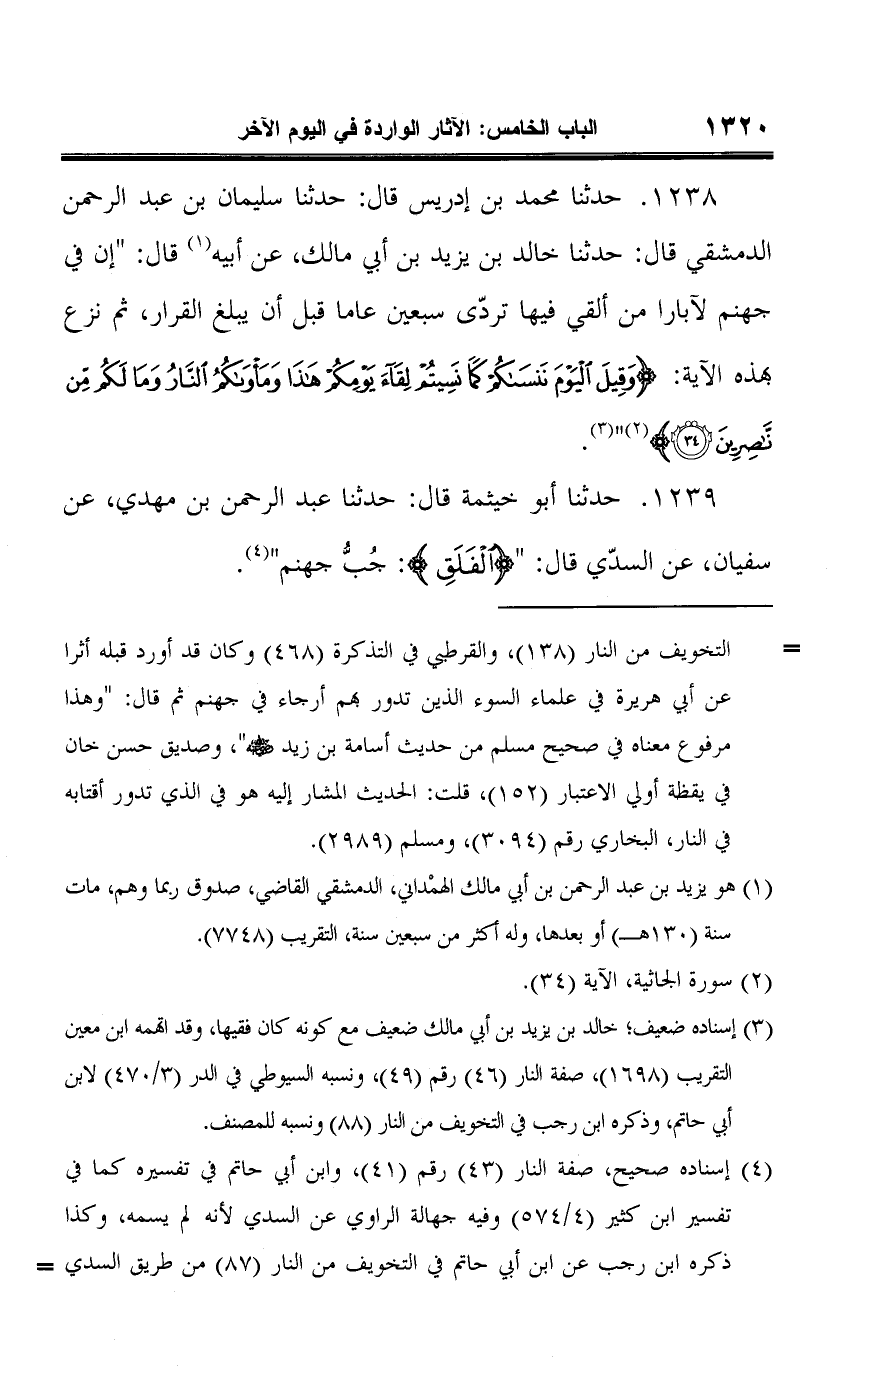 ١٣٢٠ الباب الخامس: الآثار الواردة في اليوم الآخر
١٢٣٨. حدثنا محمد بن إدريس قال: حدثنا سليمان بن عبد الرحمن
الدمشقي قال: حدثنا خالد بن يزيد بن أبي مالك، عن أبيه(١) قال: "إن في
جهنم لآبارا من ألقي فيها تردّى سبعين عاما قبل أن يبلغ القرار، ثم نزع
بهذه الآية: ﴿وَقِيلَ ٱلْيَوْمَ نَنسَىٰكُمْ كَمَا نَسِيتُمْ لِقَآءَ يَوْمِكُمْ هَٰذَا وَمَأْوَىٰكُمُ ٱلنَّارُ وَمَا لَكُم مِّن
نَّٰصِرِينَ ٣٤﴾(٢)"(٣).
١٢٣٩. حدثنا أبو خيثمة قال: حدثنا عبد الرحمن بن مهدي، عن
سفيان، عن السدّي قال: "﴿ٱلْفَلَقِ﴾: جُبُّ جهنم"(٤).
= التخويف من النار (١٣٨)، والقرطبي في التذكرة (٤٦٨) وكان قد أورد قبله أثرا
عن أبي هريرة في علماء السوء الذين تدور بهم أرجاء في جهنم ثم قال: "وهذا
مرفوع معناه في صحيح مسلم من حديث أسامة بن زيد ﷺ"، وصديق حسن خان
في يقظة أولي الاعتبار (١٥٢)، قلت: الحديث المشار إليه هو في الذي تدور أقتابه
في النار، البخاري رقم (٣٠٩٤)، ومسلم (٢٩٨٩).
(١) هو يزيد بن عبد الرحمن بن أبي مالك الهمْداني، الدمشقي القاضي، صدوق ربما وهم، مات
سنة (١٣٠هـ) أو بعدها، وله أكثر من سبعين سنة، التقريب (٧٧٤٨).
(٢) سورة الجاثية، الآية (٣٤).
(٣) إسناده ضعيف؛ خالد بن يزيد بن أبي مالك ضعيف مع كونه كان فقيها، وقد اتهمه ابن معين
التقريب (١٦٩٨)، صفة النار (٤٦) رقم (٤٩)، ونسبه السيوطي في الدر (٤٧٠/٣) لابن
أبي حاتم، وذكره ابن رجب في التخويف من النار (٨٨) ونسبه للمصنف.
(٤) إسناده صحيح، صفة النار (٤٣) رقم (٤١)، وابن أبي حاتم في تفسيره كما في
تفسير ابن كثير (٥٧٤/٤) وفيه جهالة الراوي عن السدي لأنه لم يسمه، وكذا
ذكره ابن رجب عن ابن أبي حاتم في التخويف من النار (٨٧) من طريق السدي =